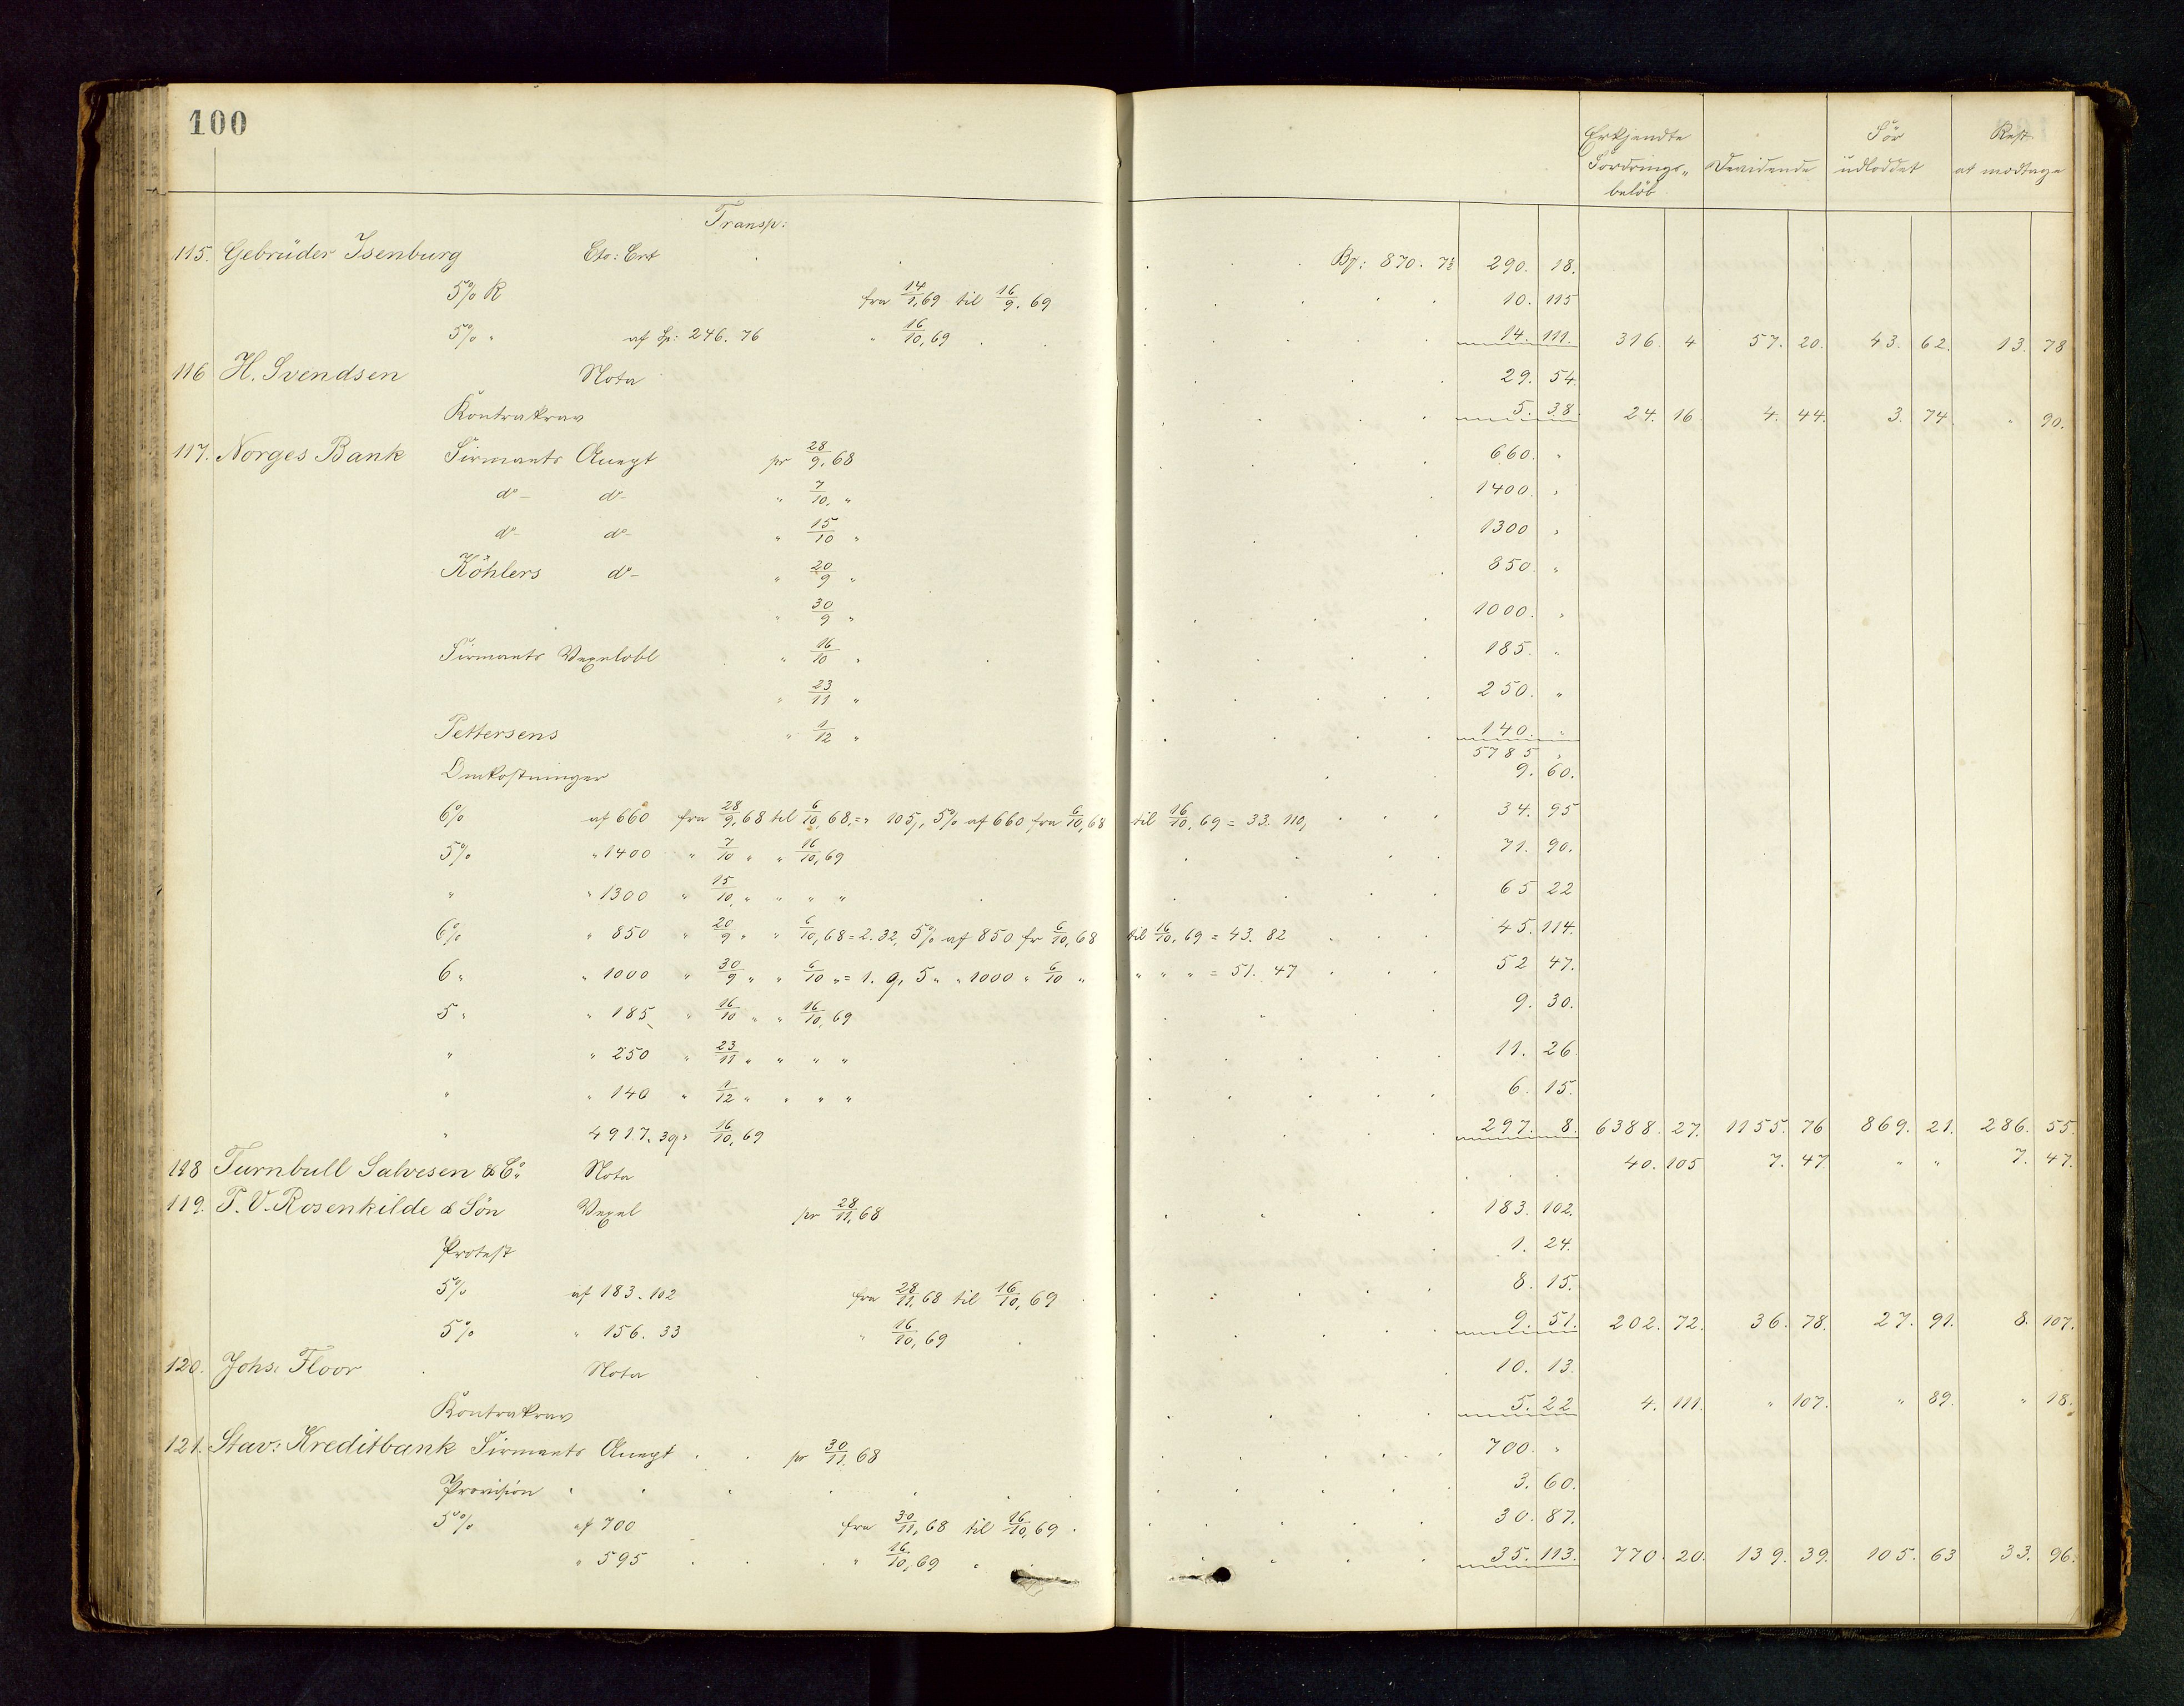 100
Erkjendte Fordrings- beløb
Devidende
Før udloddet
Rest at modtage
Transp:
115. Gebrüder Isenburg Cto: Crt Bf: 870. 7½ 290. 18.
5% R fra 14/1, 69 til 16/9. 69 10. 115
5% " af Sp: 246. 76 " 16/10, 69 14. 111. 316. 4 57. 20. 43. 62. 13. 78
116 H. Svendsen Nota 29. 54.
Kontrakrav 5. 38. 24. 16. 4. 44. 3. 74. " 90.
117. Norges Bank Firmants Accept pr 28/9. 68 660. "
do- do- " 7/10. " 1400. "
do- do- " 15/10 " 1300 "
Köhlers do- " 20/9 " 850. "
" 30/9 " 1000. "
Firmants Vexelobl " 16/10 " 185. "
" 23/11 " 250. "
Pettersens " 1/12 " 140. "
5785 "
Omkostninger 9. 60.
6% af 660 fra 28/9. 68 til 6/10, 68, = " 105, 5% af 660 fra 6/10, 68 til 16/10, 69 = 33. 110, 34. 95
5% " 1400 " 7/10 " " 16/10, 69 71. 90.
" " 1300 " 15/10, " " " " 65 22
6% " 850 " 20/9 " " 6/10, 68 = 2. 32, 5% af 850 fr 6/10, 68 til 16/10. 69 = 43. 82 45. 114.
6 " " 1000 " 30/9 " " 6/10 " = 1. 9, 5 " " 1000 " 6/10 " " " " = 51. 47 52 47.
5 " " 185 " 16/10 " " 16/10, 69 9. 30.
" " 250 " 23/11 " " " " 11. 26.
" " 140 " 1/12 " " " " 6. 15.
" 4917. 39 " 16/10, 69 297. 8. 6388. 27. 1155. 76 869. 21. 286. 55.
118 Turnbull Salvesen & Co: Nota 40. 105 7. 47 " " 7. 47.
119. T. V. Rosenkilde & Sön Vexel pr 28/11, 68 183. 102.
Protest 1. 24.
5% af 183. 102 fra 28/11, 68 til 16/10, 69 8. 15.
5% " 156. 33 " 16/10, 69 9. 51. 202. 72. 36. 78. 27. 91. 8. 107.
120. Johs. Floor Nota 10. 13.
Kontrakrav 5. 22 4. 111. " 107. " 89. " 18.
121. Stav: Kreditbank Firmants Accept pr 30/11. 68 700. "
Provision 3. 60.
5% af 700 fra 30/11, 68 til 16/10, 69 30. 87.
" 595 " 16/10, 69 35. 113. 770. 20. 139. 39. 105. 63 33. 96.